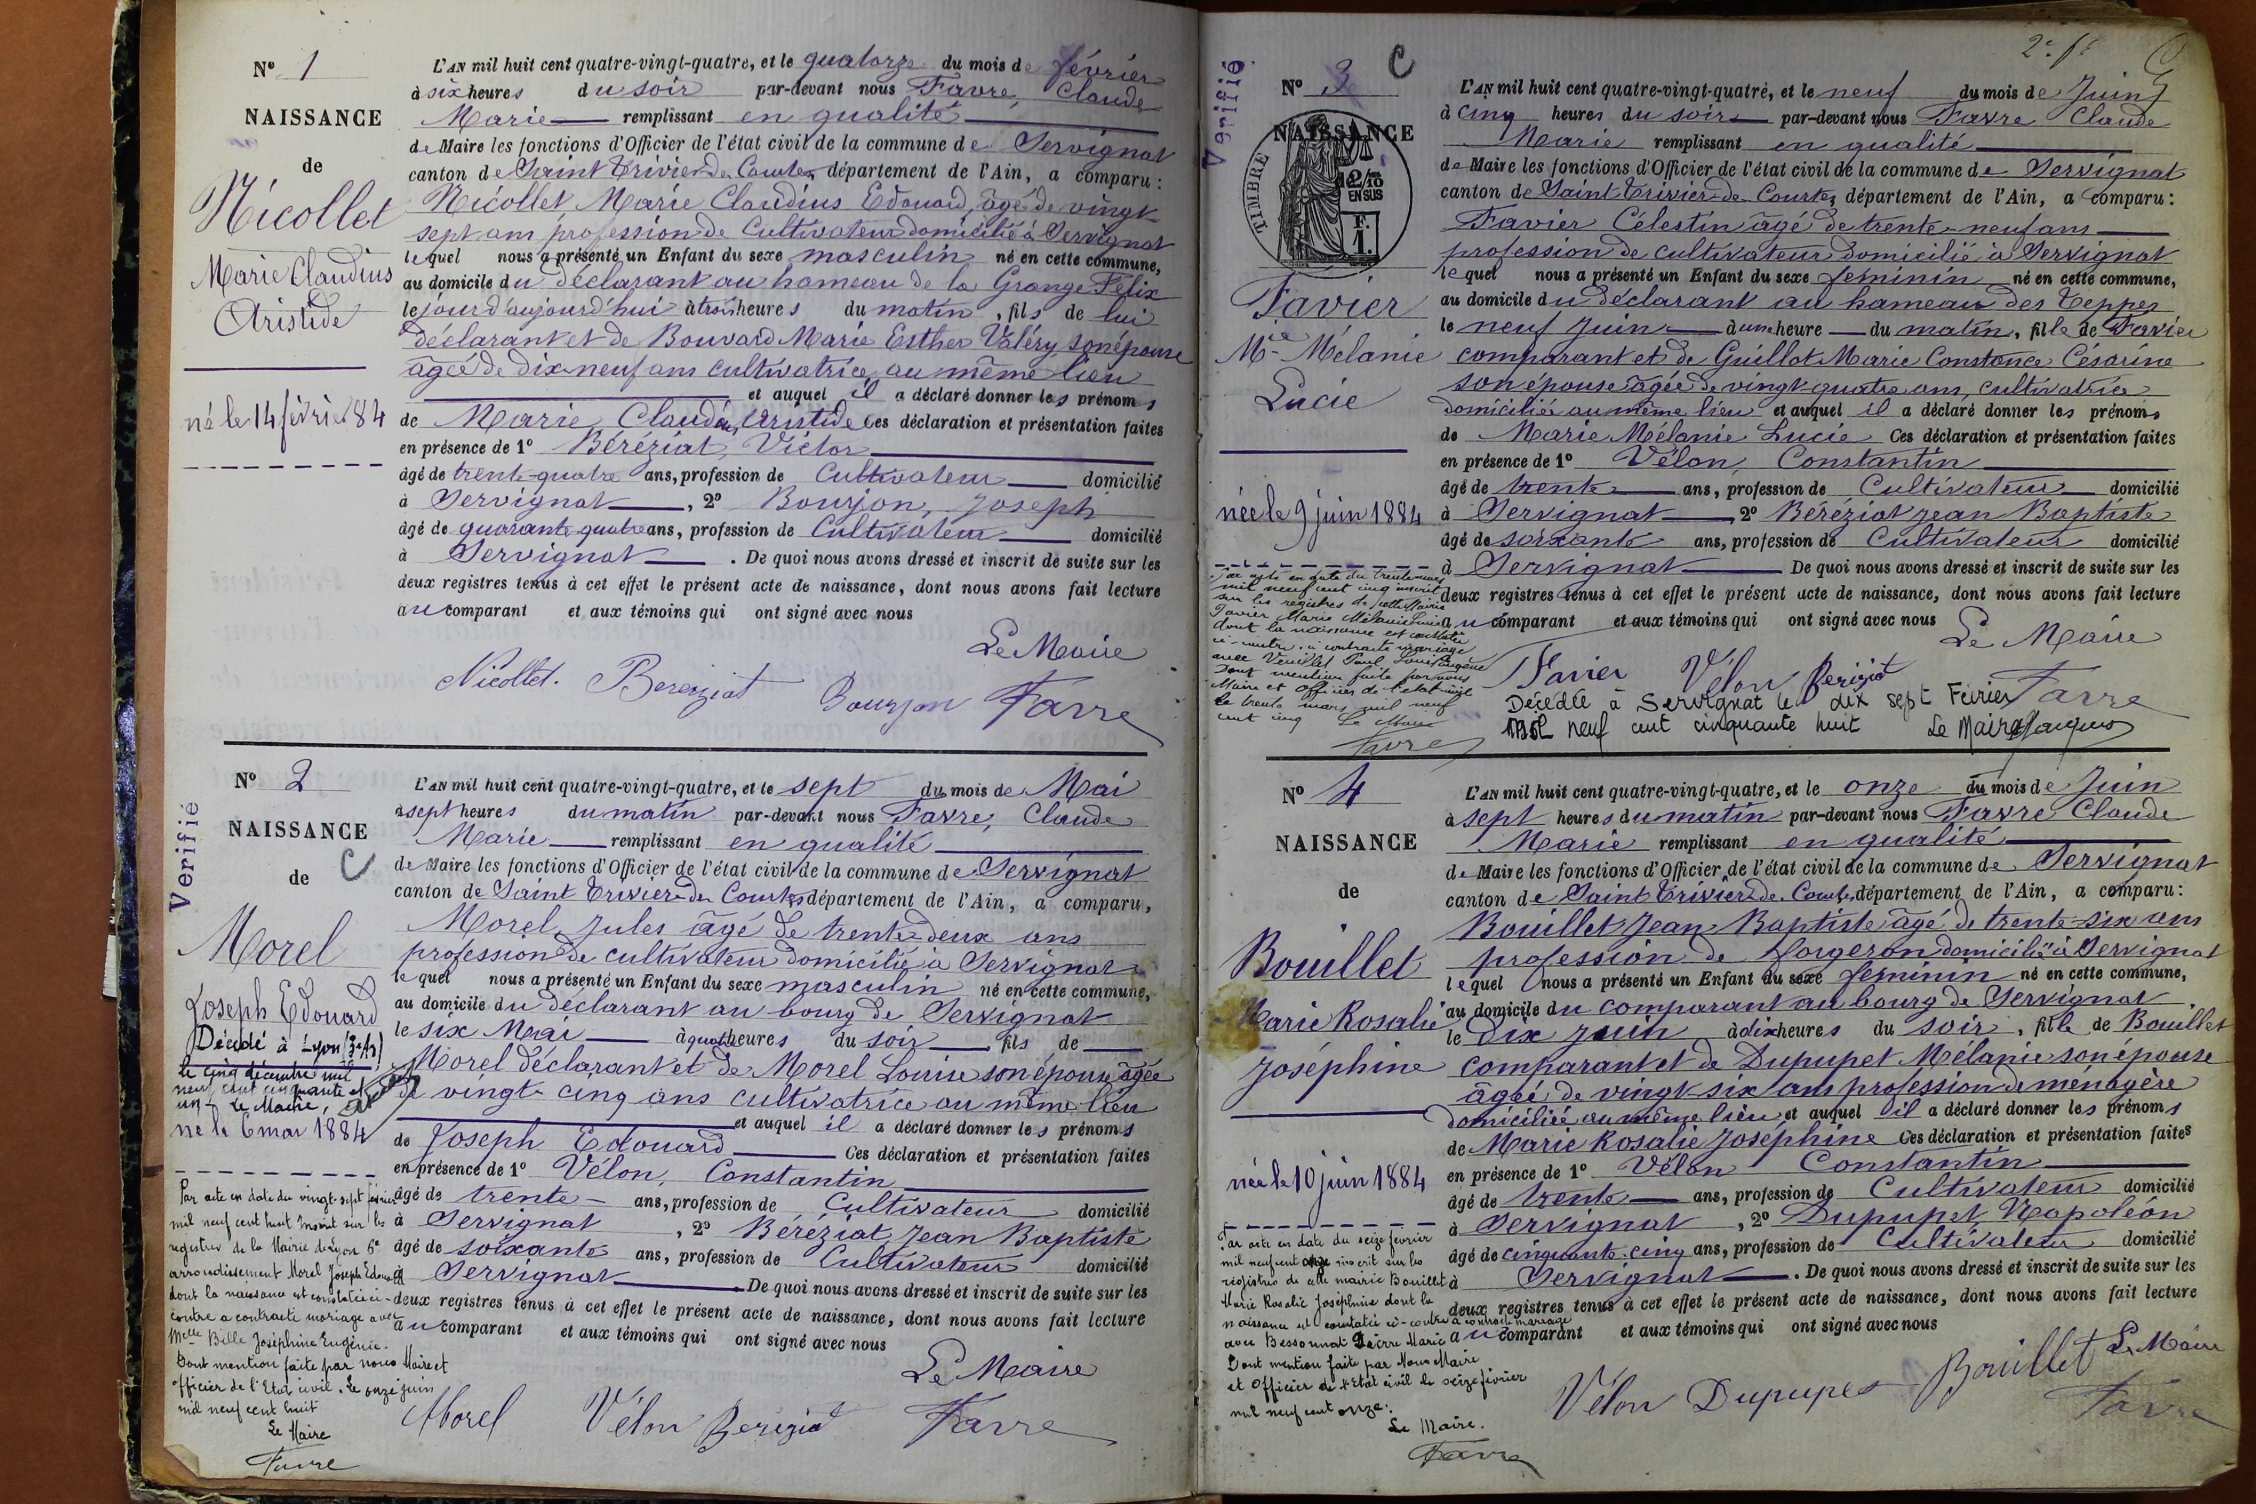 N° 1
NAISSANCE
de
Nicollet
Marie Claudius
Aristide
né le 14 février 84
L'AN mil huit cent quatre-vingt-quatre, et le quatorze du mois de février
à six heures du soir par-devant nous Favre, Claude
Marie remplissant en qualité
de Maire les fonctions d'Officier de l'état civil de la commune de Servignat
canton de Saint Trivier de Courtes, département de l'Ain, a comparu :
Nicollet Marie Claudius Edouard, âgé de vingt
sept ans profession de Cultivateur domicilié à Servignat
lequel nous a présenté un Enfant du sexe masculin né en cette commune,
au domicile du déclarant au hameau de la Grange Félix
le jour d'aujourd'hui à trois heures du matin, fils de lui
déclarant et de Bouvard Marie Esther Valéry son épouse
âgée de dix-neuf ans cultivatrice au même lieu
et auquel il a déclaré donner les prénoms
de Marie, Claudius, Aristide Ces déclaration et présentation faites
en présence de 1° Béréziat, Victor
âgé de trente-quatre ans, profession de Cultivateur domicilié
à Servignat, 2° Bourjon, Joseph
âgé de quarante quatre ans, profession de Cultivateur domicilié
à Servignat. De quoi nous avons dressé et inscrit de suite sur les
deux registres tenus à cet effet le présent acte de naissance, dont nous avons fait lecture
au comparant et aux témoins qui ont signé avec nous
Le Maire
Nicollet. Bereziat Bourjon Favre
Verifié
N° 2
NAISSANCE
de C
Morel
Joseph Edouard
Décédé à Lyon (3e Ar)
le cinq décembre mil
neuf cent cinquante et
un - Le Maire,
né le 6 mai 1884
Par acte en date du vingt-sept février
mil neuf cent huit inscrit sur les
registres de la Mairie de Lyon 6e
arrondissement Morel Joseph Edouard
dont la naissance est constatée ci-
contre a contracté mariage avec
Melle Bille Joséphine Eugénie.
Dont mention faite par nous Maire et
officier de l'Etat civil. Le onze juin
mil neuf cent huit
Le Maire
Favre
L'AN mil huit cent quatre-vingt-quatre, et le sept du mois de Mai
à sept heures du matin par-devant nous Favre, Claude
Marie remplissant en qualité
de Maire les fonctions d'Officier de l'état civil de la commune de Servignat
canton de Saint Trivier de Courtes département de l'Ain, a comparu,
Morel, Jules âgé de trente-deux ans
profession de cultivateur domicilié à Servignat
lequel nous a présenté un Enfant du sexe masculin né en cette commune,
au domicile du déclarant au bourg de Servignat
le six Mai à quatre heures du soir fils de
Morel déclarant et de Morel Louise son épouse âgée
de vingt-cinq ans cultivatrice au même lieu
et auquel il a déclaré donner les prénoms
de Joseph Edouard Ces déclaration et présentation faites
en présence de 1° Vélon, Constantin
âgé de trente ans, profession de Cultivateur domicilié
à Servignat, 2° Béréziat, Jean Baptiste
âgé de soixante ans, profession de Cultivateur domicilié
à Servignat De quoi nous avons dressé et inscrit de suite sur les
deux registres tenus à cet effet le présent acte de naissance, dont nous avons fait lecture
au comparant et aux témoins qui ont signé avec nous
Le Maire
Morel Vélon Bereziat Favre
2e ft
Verifié
N° 3 C
NAISSANCE
TIMBRE
2/10
EN SUS
F.
1.
Favier
Mie Mélanie
Lucie
née le 9 juin 1884
Par acte en date du trente mars
mil neuf cent cinq inscrit
sur les registres de cette Mairie
Favier Marie Mélanie Lucie
dont la naissance est constatée
ci-contre a contracté mariage
avec Veuillet Paul Louis Eugène
Dont mention faite par nous
Maire et officier de l'état civil
le trente mars mil neuf
cent cinq Le Maire
Favre
L'AN mil huit cent quatre-vingt-quatre, et le neuf du mois de Juin
à cinq heures du soir par-devant nous Favre Claude
Marie remplissant en qualité
de Maire les fonctions d'Officier de l'état civil de la commune de Servignat
canton de Saint Trivier de Courtes, département de l'Ain, a comparu :
Favier Célestin âgé de trente-neuf ans
profession de cultivateur domicilié à Servignat
lequel nous a présenté un Enfant du sexe féminin né en cette commune,
au domicile du déclarant au hameau des Teppes
le neuf Juin à une heure du matin, fille de Favier
comparant et de Guillot Marie Constance Césarine
son épouse âgée de vingt quatre ans, cultivatrice
domiciliée au même lieu et auquel il a déclaré donner les prénoms
de Marie Mélanie Lucie Ces déclaration et présentation faites
en présence de 1° Vélon, Constantin
âgé de trente ans, profession de Cultivateur domicilié
à Servignat, 2° Béréziat Jean Baptiste
âgé de soixante ans, profession de Cultivateur domicilié
à Servignat De quoi nous avons dressé et inscrit de suite sur les
deux registres tenus à cet effet le présent acte de naissance, dont nous avons fait lecture
au comparant et aux témoins qui ont signé avec nous
Le Maire
Favier Vélon Bereziat Favre
Décédée à Servignat le dix sept Février
mil neuf cent cinquante huit Le Maire Jacquos
N° 4
NAISSANCE
de
Bouillet
Marie Rosalie
Joséphine
née le 10 juin 1884
Par acte en date du seize février
mil neuf cent onze inscrit sur les
registres de cette mairie Bouillet
Marie Rosalie Joséphine dont la
naissance est constatée ci-contre a contracté mariage
avec Bessonnat Pierre Marie
Dont mention faite par Nous Maire
et Officier de l'Etat civil le seize février
mil neuf cent onze.
Le Maire.
Favre
L'AN mil huit cent quatre-vingt-quatre, et le onze du mois de Juin
à sept heures du matin par-devant nous Favre Claude
Marie remplissant en qualité
de Maire les fonctions d'Officier de l'état civil de la commune de Servignat
canton de Saint Trivier de Courtes, département de l'Ain, a comparu :
Bouillet Jean Baptiste âgé de trente-six ans
profession de forgeron domicilié à Servignat
lequel nous a présenté un Enfant du sexe féminin né en cette commune,
au domicile du comparant au bourg de Servignat
le Dix Juin à dix heures du soir, fille de Bouillet
comparant et de Dupupet Mélanie son épouse
âgée de vingt-six ans profession de ménagère
domiciliée au même lieu, et auquel il a déclaré donner les prénoms
de Marie Rosalie Joséphine Ces déclaration et présentation faites
en présence de 1° Vélon Constantin
âgé de trente ans, profession de Cultivateur domicilié
à Servignat, 2° Dupupet Napoléon
âgé de cinquante-cinq ans, profession de Cultivateur domicilié
à Servignat. De quoi nous avons dressé et inscrit de suite sur les
deux registres tenus à cet effet le présent acte de naissance, dont nous avons fait lecture
au comparant et aux témoins qui ont signé avec nous
Vélon Dupupet Bouillet Le Maire
Favre